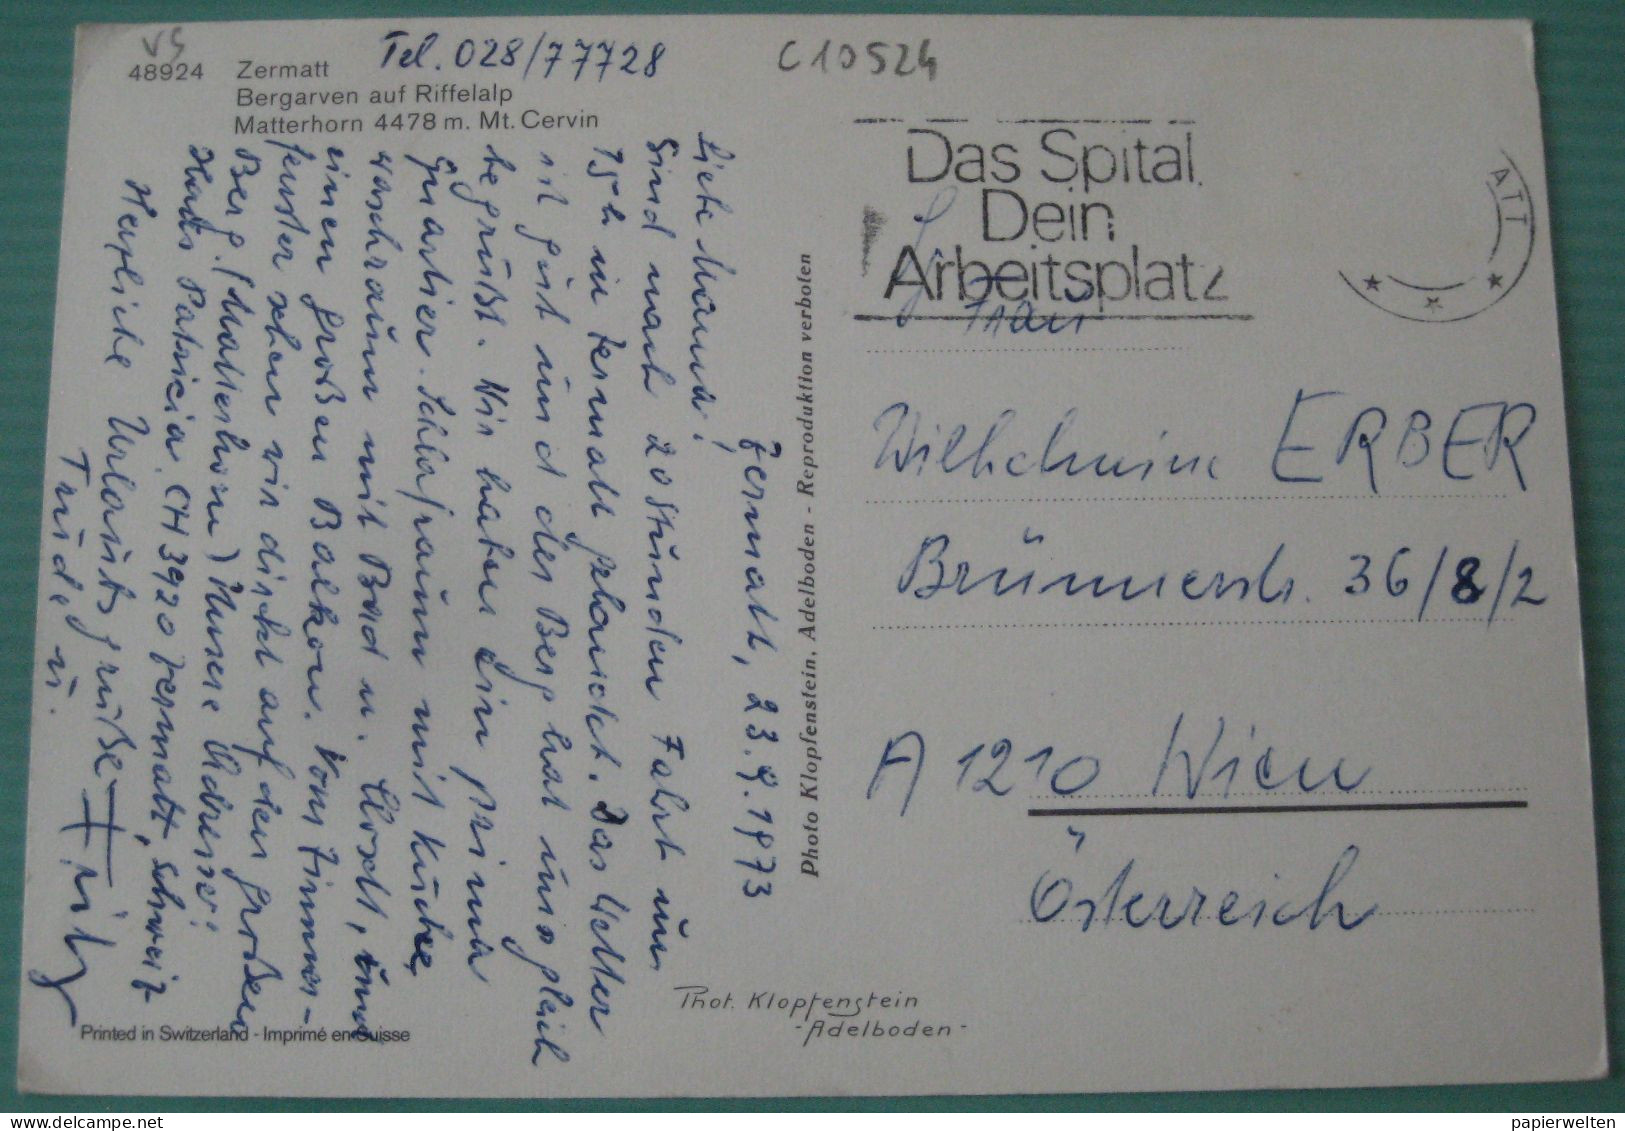 VS
48924 Zermatt
Bergarven auf Riffelalp
Matterhorn 4478 m. Mt. Cervin
Tel. 028/77728
C10524
Zermatt, 23.9.1973
Liebe Mama!
Sind nach 20 Stunden Fahrt um
15h in Zermatt gelandet. Das Wetter
ist gut und der Berg hat uns gleich
begrüßt. Wir haben ein prima
Quartier. Schlafraum mit Küche,
Waschraum mit Bad u. Closett, und
einen großen Balkon. Vom Zimmer-
fenster sehen wir direkt auf den großen
Berg. (Matterhorn) Unsere Adresse:
Haus Patricia CH 3920 Zermatt, Schweiz
Herzliche Urlaubsgrüße Fritz
Trude u.
Printed in Switzerland - Imprimé en Suisse
Photo Klopfenstein, Adelboden - Reproduktion verboten
Phot. Klopfenstein
- Adelboden -
Das Spital
Dein
Arbeitsplatz
ATT
Frau
Wilhelmine ERBER
Brünnerstr. 36/8/2
A 1210 Wien
Österreich
papierwelten